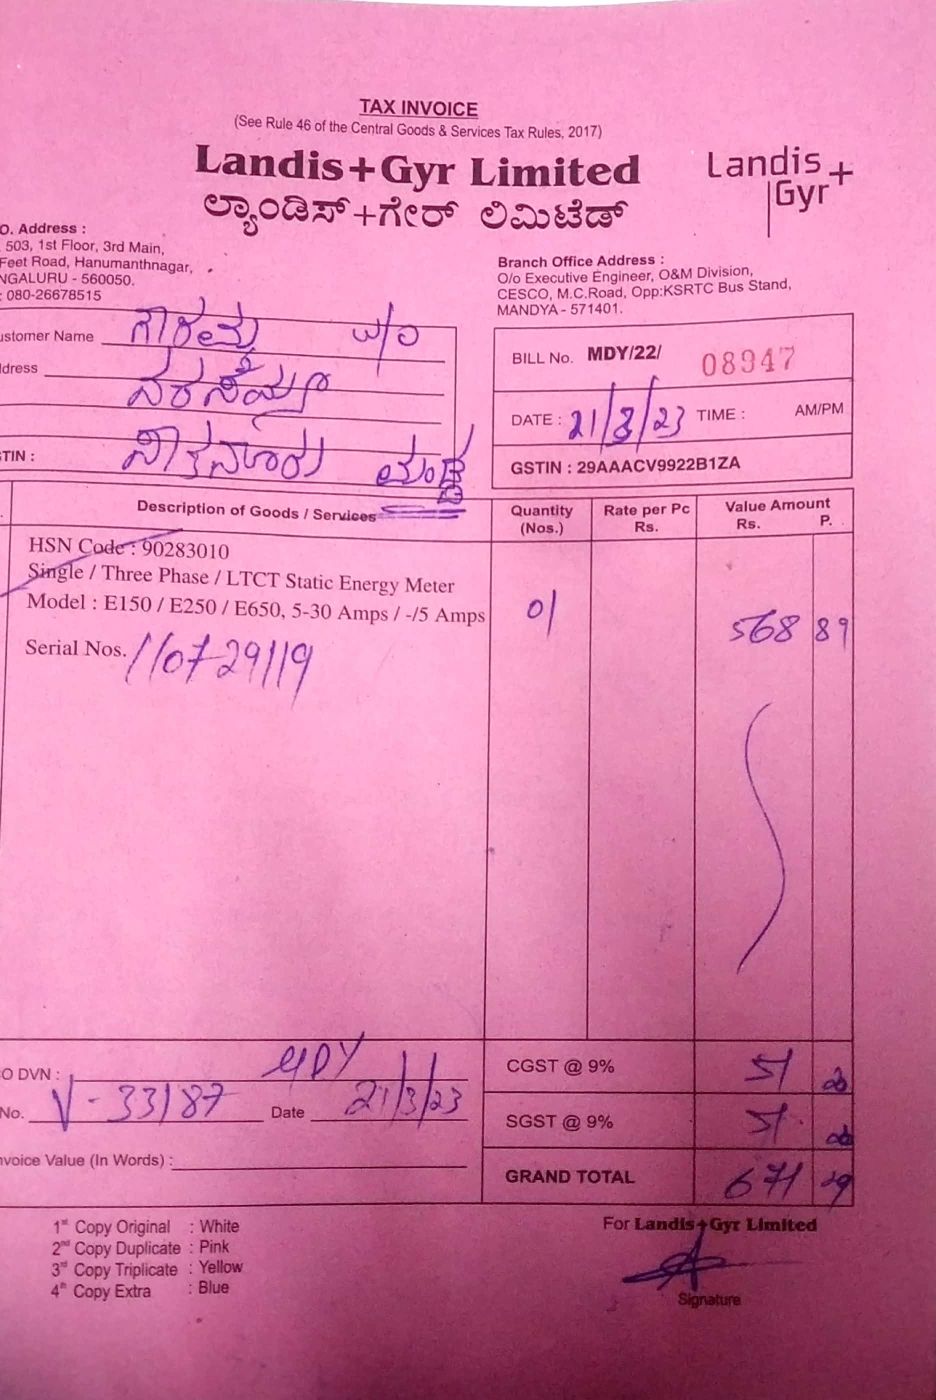 TAX INVOICE
(See Rule 46 of the Central Goods & Services Tax Rules, 2017)
Landis+Gyr Limited
Landis+
Gyr
ಲ್ಯಾಂಡಿಸ್+ಗೇರ್ ಲಿಮಿಟೆಡ್
O. Address :
503, 1st Floor, 3rd Main,
Feet Road, Hanumanthnagar,
NGALURU - 560050.
: 080-26678515
Branch Office Address :
O/o Executive Engineer, O&M Division,
CESCO, M.C.Road, Opp:KSRTC Bus Stand,
MANDYA - 571401.
ustomer Name ಗೌರಮ್ಮ w/o
ddress
TIN : ಮಂಡ್ಯ
BILL No. MDY/22/ 08947
DATE : 21/3/23 TIME : AM/PM
GSTIN : 29AAACV9922B1ZA
Description of Goods / Services Quantity (Nos.) Rate per Pc Rs. Value Amount Rs. P.
HSN Code : 90283010
Single / Three Phase / LTCT Static Energy Meter
Model : E150 / E250 / E650, 5-30 Amps / -/5 Amps 01 568 89
Serial Nos. 110729119
O DVN : MDY
No. V-33187 Date 21/3/23
nvoice Value (In Words) :
CGST @ 9% 51 20
SGST @ 9% 51 20
GRAND TOTAL 671 29
1st Copy Original : White
2nd Copy Duplicate : Pink
3rd Copy Triplicate : Yellow
4th Copy Extra : Blue
For Landis+Gyr Limited
Signature